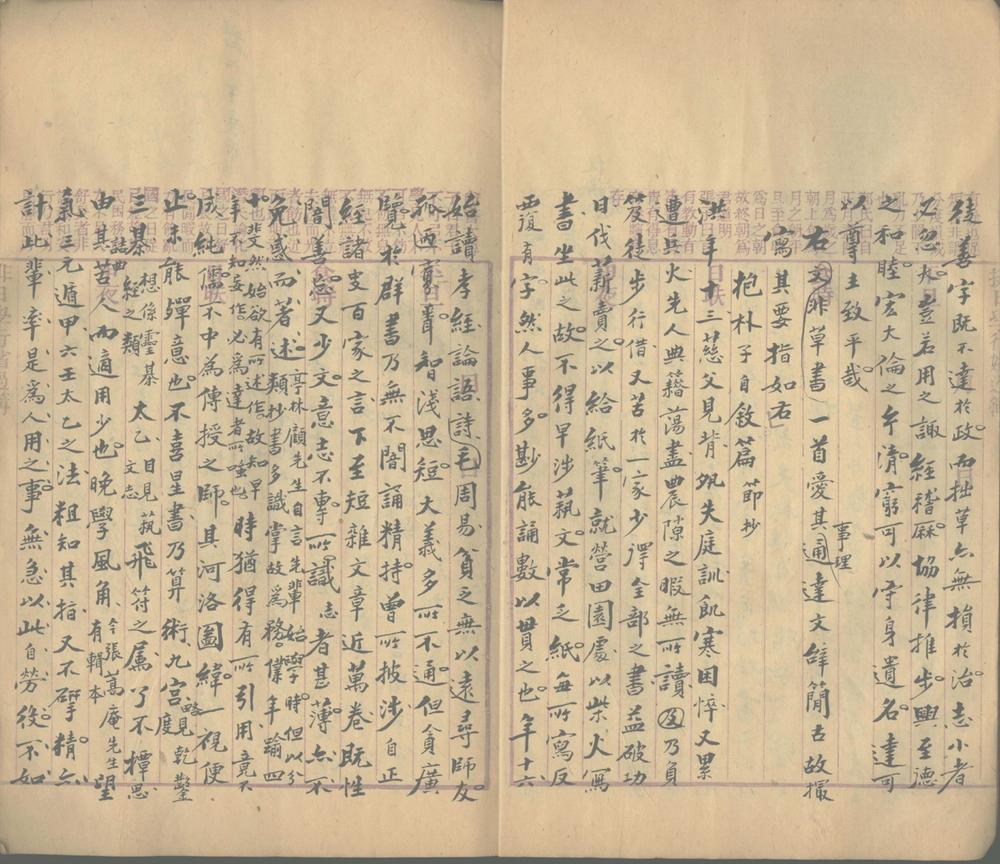 後善字既不達於政而拙草亦無損於治志小者
又忽用之諏經稽麻協律推步興至德
之和睦宏大倫之清窮可以守身遺名達可
以尊主致平哉
右文非草書一首愛其通達事理文辭簡古故撮
寫其要指如右
抱朴子自敘篇節抄
洪年十三慈父見背夙失庭訓飢寒困悴又累
遭兵火先人典籍蕩盡農隙之暇無所讀乃負
笈徒步行借又苦於一家少得全部之書益破功
日伐薪賣之以給紙筆就營田園處以柴火寫
書坐此之故不得早涉藝文常乏紙每所寫反
覆有字然人事多尠能誦數以貫之也年十六
始讀孝經論語詩毛周易貧乏無以遠尋師友
孤陋寡聞智淺思短大義多所不通但貪廣
覽於群書乃無不闇誦精持曾所披涉自正
經諸史百家之言下至短雜文章近萬卷既性
闇善忘又少文意志不專所識志者甚薄亦不
免惑而著述類抄書多識掌故為務僕年踰四
十斐然始欲有所述作故知早年不知妄作必為達者所嗤也亭林顧先生自言先輩始學時但以分時猶得有所引用竟不
成純儒不中為傳授之師其河洛圖緯一視便
止未能彈意也不喜星書乃算術九宮略見乾鑿度
三棊想係靈棊經之類太乙目見藝文志飛符之屬了不橝思
由其苦人而適用少也晚學風角今張萬庵先生有輯本望
氣三元遁甲六壬太乙之法粗知其指又不研精亦
計此輩率是為人用之事無急以此自勞役不如